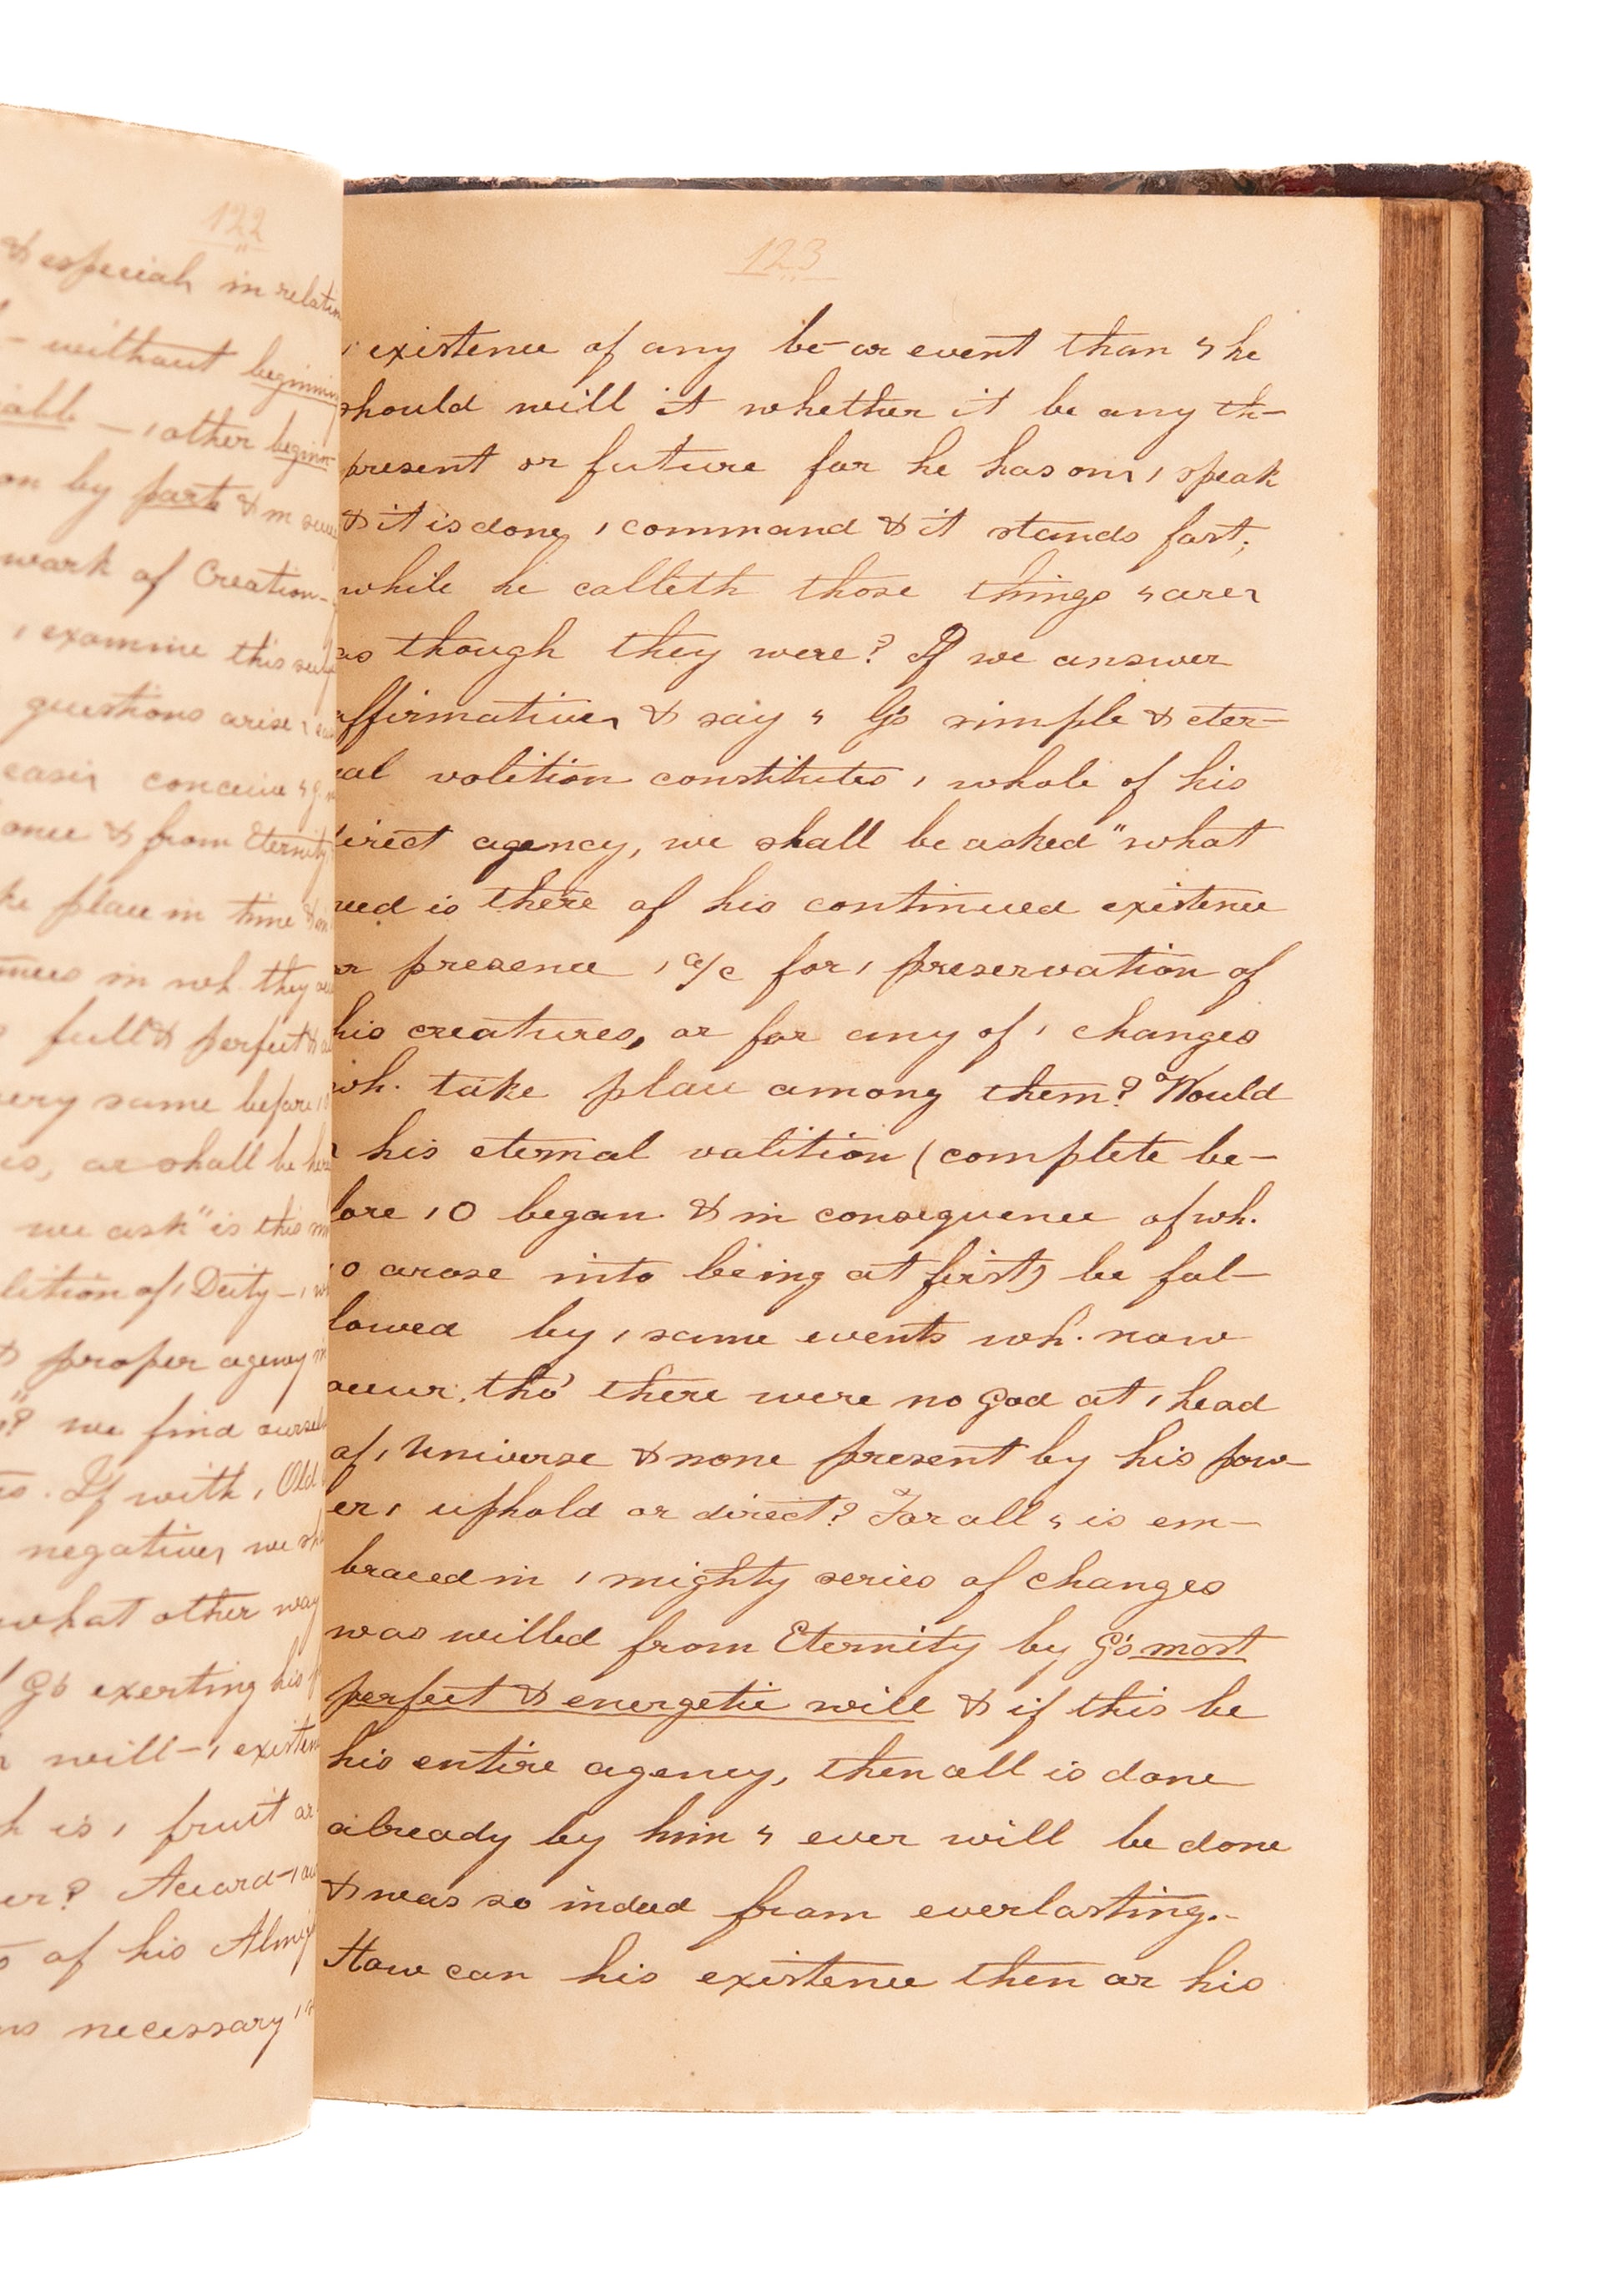 122
& especiah in relation
- without beginning
- , other beginn-
on by parts & in
work of Creation-
, examine this
questions arise,
easir conceive ꜧ
once & from Eternity
place in time &
in wh. they
full & perfect &
very same before ,
is, or shall be
we ask "is this
lition of , Deity - ,
& proper agency
we find
If with , Old
negativeɿ we
what other way
G's exerting his
will - , existen
is , fruit or
er? Accord- ,
of his
necessary ,
123
, existence of any be- or event than ꜧ he
should will it whether it be any th-
present or future for he has onɿ , speak
& it is done, , command & it stands fast;
while he calleth those things ꜧ areɿ
as though they were? If we answer
affirmativeɿ & say ꜧ G's simple & eter-
nal volition constitutes , whole of his
direct agency, we shall be asked "what
need is there of his continued existence
or presence , a/c for , preservation of
his creatures, or for any of , changes
wh. take place among them? Would
ɿ his eternal volition (complete be-
fore , O began & in consequence of wh.
, O arose into being at first) be fol-
lowed by , same events wh. now
occur, tho' there were no God at , head
of , Universe & none present by his pow-
er , uphold or direct? For all ꜧ is em-
braced in , mighty series of changes
was willed from Eternity by G's most
perfect & energetic will & if this be
his entire agency, then all is done
already by him ꜧ ever will be done
& was so indeed from everlasting.-
How can his existence then or his